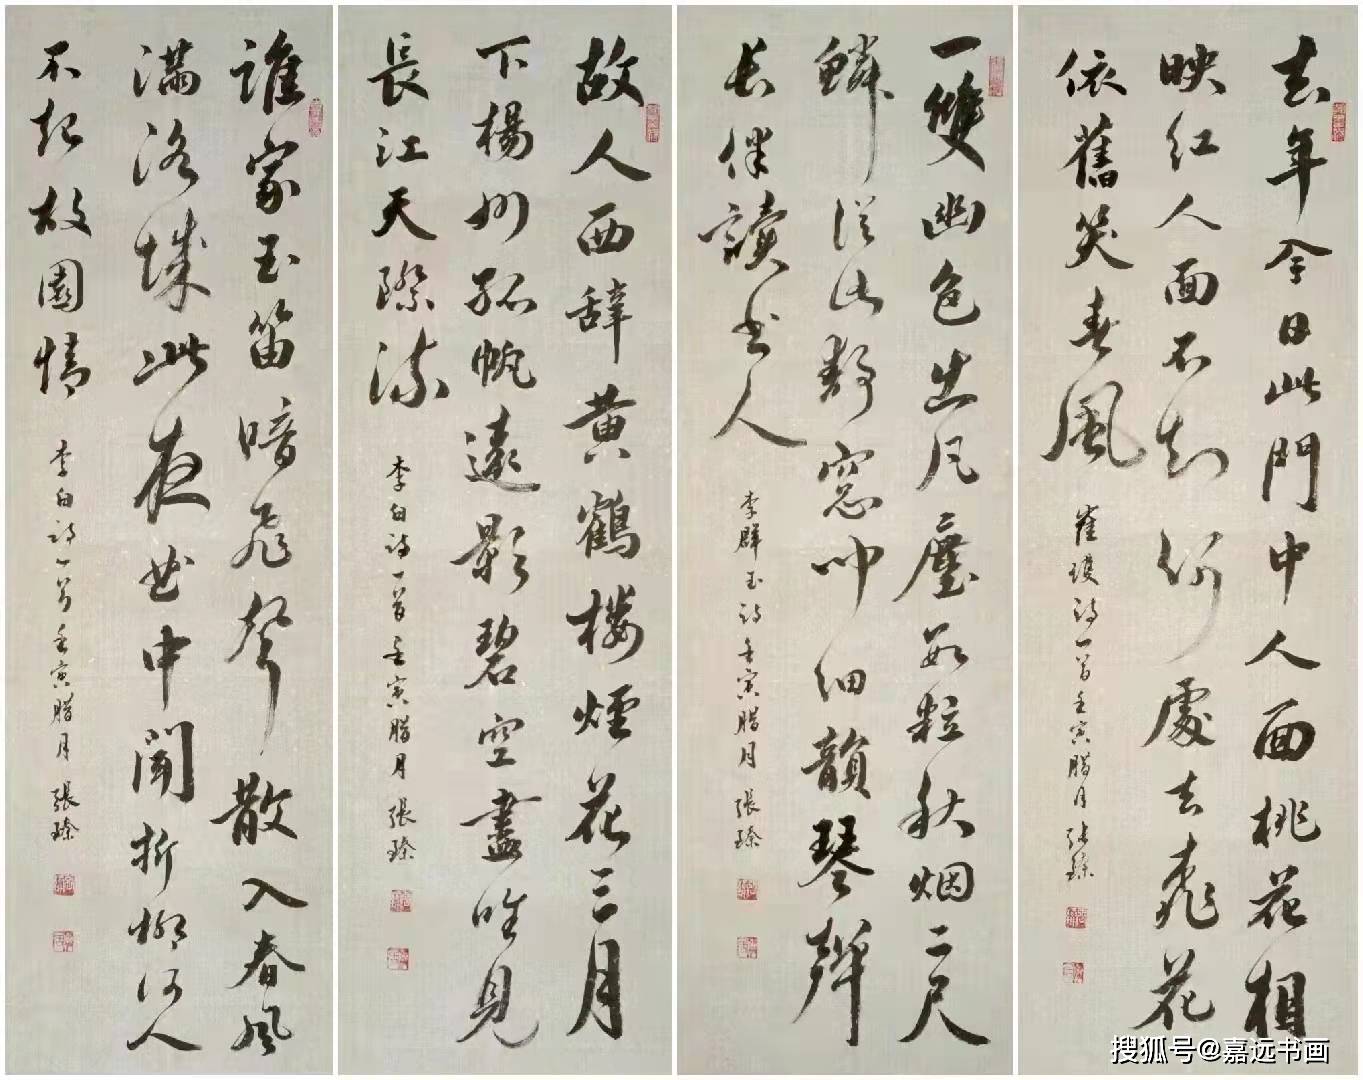 去年今日此門中人面桃花相
映红人面不知何處去桃花
依舊笑春風
崔護詩一首壬寅腊月張臻
一雙幽色出凡塵數粒秋烟二尺
鱗從此静窓聞细韻琴聲
長伴讀書人
李群玉詩壬寅腊月張臻
故人西辞黄鶴樓煙花三月
下楊州孤帆遠影碧空盡唯見
長江天際流
李白詩一首壬寅腊月張臻
誰家玉笛暗飛聲散入春風
滿洛城此夜曲中聞折柳何人
不起故園情
李白詩一首壬寅腊月張臻
搜狐号@嘉远书画